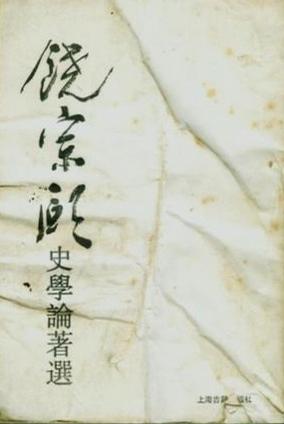 饶宗颐史學論著選
上海古籍 版社